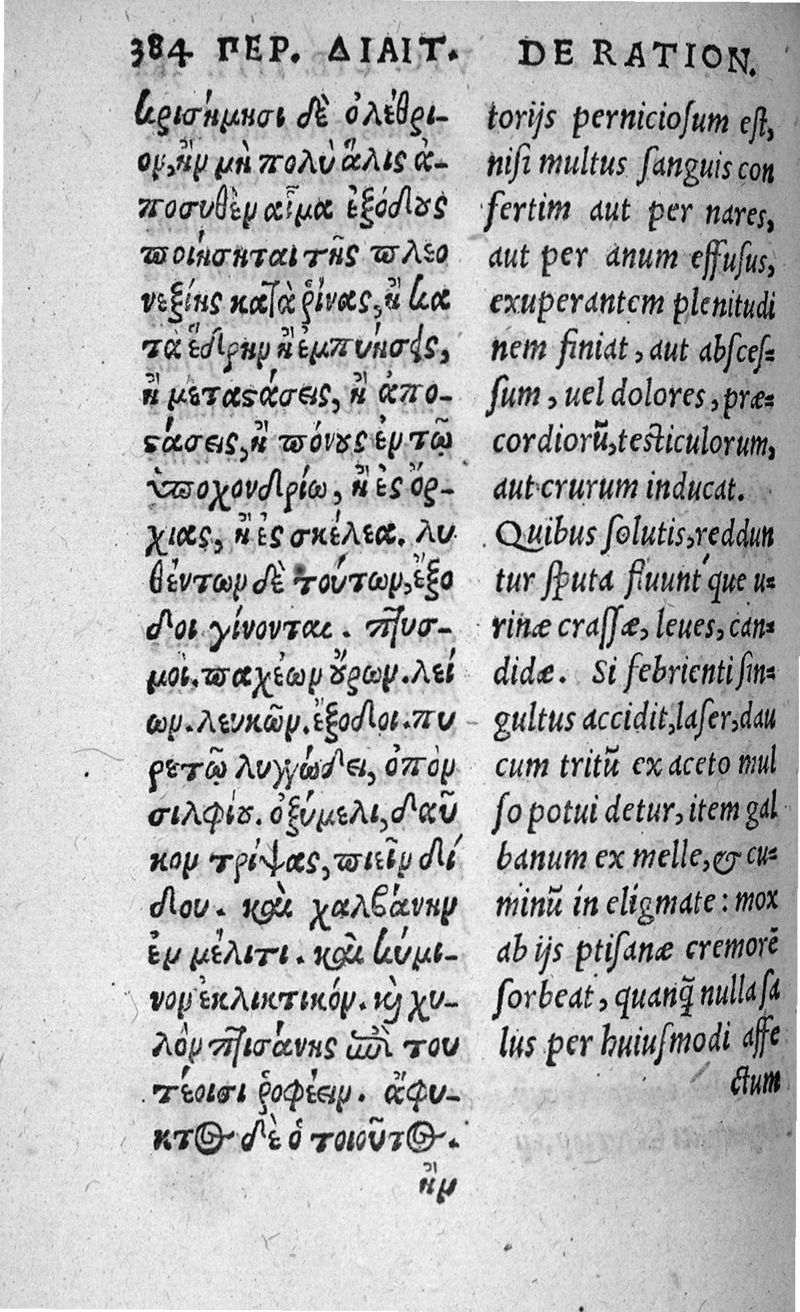 384 ΠΕΡ. ΔΙΑΙΤ.
κρισήμησι δὲ ὀλέθρι-
ον, ἢν μὴ πολὺ ἅλις ἀ-
ποσυθὲν αἷμα ἐξόδους
ποιήσηται τῆς πλεο
νεξίης κατὰ ῥίνας, ἢ κα
τὰ ἕδρην ἢ ἐμπυήσῃς,
ἢ μεταστάσεις, ἢ ἀπο-
στάσεις, ἢ πόνους ἐν τῷ
ὑποχονδρίῳ, ἢ ἐς ὄρ-
χιας, ἢ ἐς σκέλεα. λυ
θέντων δὲ τούτων, ἔξο
δοι γίνονται. πτυσ-
μοὶ. παχέων οὔρων. λεί
ων. λευκῶν. ἔξοδοι. πυ
ρετῷ λυγγώδει, ὀπὸν
σιλφίου. ὀξύμελι, δαῦ
κον τρίψας, πιεῖν δί
δου. καὶ χαλβάνην
ἐν μέλιτι. καὶ κύμι-
νον ἐκλικτικόν. καὶ χυ-
λὸν πτισάνης ἐπὶ του
τέοισι ῥοφέειν. ἄφυ-
κτος δὲ ὁ τοιοῦτος.
ἢν
DE RATION.
torijs perniciosum est,
nisi multus sanguis con
fertim aut per nares,
aut per anum effusus,
exuperantem plenitudi
nem finiat, aut absces-
sum, uel dolores, præ-
cordiorũ, testiculorum,
aut crurum inducat.
Quibus solutis, reddun
tur sputa fluunt́que u-
rinæ crassæ, leues, can-
didæ. Si febrienti sin-
gultus accidit, laser, dau
cum tritũ ex aceto mul
so potui detur, item gal
banum ex melle, & cu-
minũ in eligmate: mox
ab ijs ptisanæ cremorẽ
sorbeat, quanq̃ nulla sa
lus per huiusmodi affe
ctum